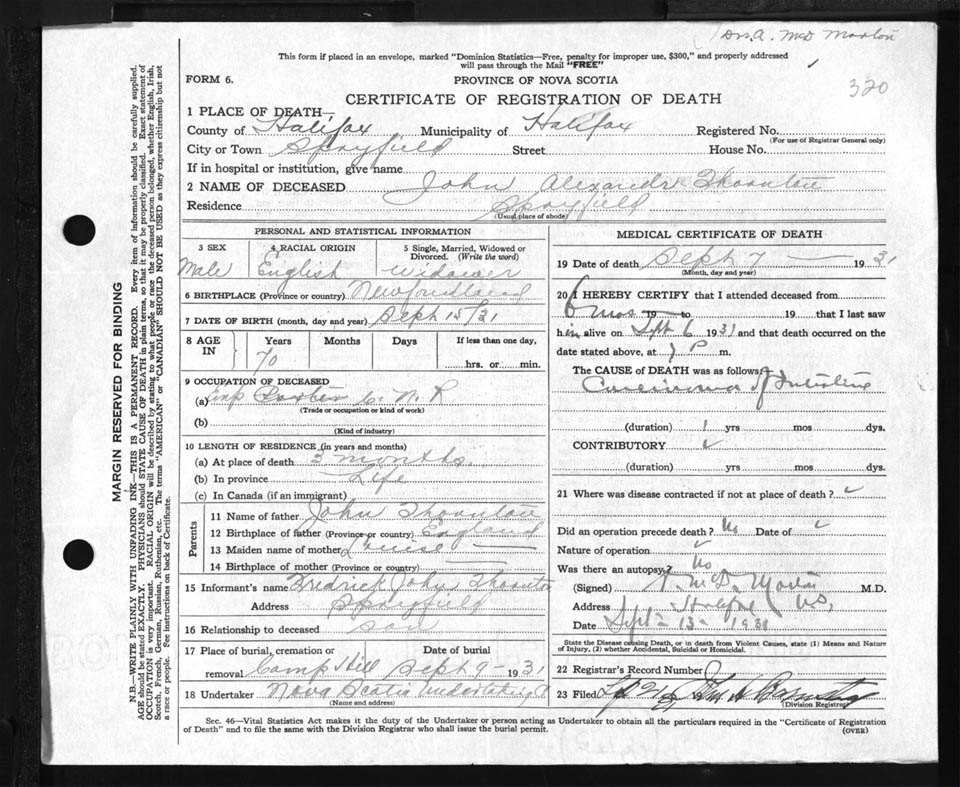 Drs. A. McD Morton
This form if placed in an envelope, marked "Dominion Statistics—Free, penalty for improper use, $300," and properly addressed
will pass through the Mail "FREE"
320
FORM 6.
PROVINCE OF NOVA SCOTIA
CERTIFICATE OF REGISTRATION OF DEATH
1 PLACE OF DEATH—
County of Halifax Municipality of Halifax Registered No.
(For use of Registrar General only)
City or Town Spryfield Street House No.
If in hospital or institution, give name
2 NAME OF DECEASED John Alexander Thornton
Residence Spryfield
(Usual place of abode)
PERSONAL AND STATISTICAL INFORMATION
3 SEX 4 RACIAL ORIGIN 5 Single, Married, Widowed or Divorced. (Write the word)
Male English Widower
6 BIRTHPLACE (Province or country) Newfoundland
7 DATE OF BIRTH (month, day and year) Sept 15/31
8 AGE IN Years Months Days If less than one day,
70 hrs. or min.
9 OCCUPATION OF DECEASED
(a) Porter C. N. R
(Trade or occupation or kind of work)
(b)
(Kind of industry)
10 LENGTH OF RESIDENCE (in years and months)
(a) At place of death 3 months
(b) In province Life
(c) In Canada (if an immigrant)
Parents
11 Name of father John Thornton
12 Birthplace of father (Province or country) England
13 Maiden name of mother Louise —
14 Birthplace of mother (Province or country)
15 Informant's name Fredrick John Thornton
Address Spryfield
16 Relationship to deceased son
17 Place of burial, cremation or removal Date of burial
Camp Hill Sept 9 - 1931
18 Undertaker Nova Scotia Undertaking
(Name and address)
MEDICAL CERTIFICATE OF DEATH
19 Date of death Sept 7 — 1931
(Month, day and year)
20 I HEREBY CERTIFY that I attended deceased from
6 mos 19 to 19 that I last saw
him alive on Sept 6 1931 and that death occurred on
date stated above, at P m.
The CAUSE of DEATH was as follows:
Carcinoma of Intestine
(duration) 1 yrs mos dys.
CONTRIBUTORY
(duration) yrs mos dys.
21 Where was disease contracted if not at place of death?
Did an operation precede death? No Date of
Nature of operation
Was there an autopsy? No
(Signed) A. McD. Morton M.D.
Address Halifax N.S.
Date Sept 13 1931
State the Disease causing Death, or in death from Violent Causes, state (1) Means and Nature
of Injury, (2) whether Accidental, Suicidal or Homicidal.
22 Registrar's Record Number
23 Filed
(Division Registrar)
Sec. 46—Vital Statistics Act makes it the duty of the Undertaker or person acting as Undertaker to obtain all the particulars required in the "Certificate of Registration
of Death" and to file the same with the Division Registrar who shall issue the burial permit.
(OVER)
MARGIN RESERVED FOR BINDING
N.B.—WRITE PLAINLY WITH UNFADING INK—THIS IS A PERMANENT RECORD. Every item of information should be carefully supplied.
AGE should be stated EXACTLY. PHYSICIANS should STATE CAUSE OF DEATH in plain terms, so that it may be properly classified. Exact statement of
OCCUPATION is very important. RACIAL ORIGIN will be described by stating to what people or race the deceased person belonged, whether English, Irish,
Scotch, French, German, Russian, Ruthenian, etc. The terms "AMERICAN" or "CANADIAN" SHOULD NOT BE USED as they express citizenship but not
a race or people. See instructions on back of Certificate.